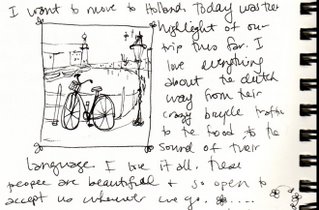 I want to move to Holland. Today was the
highlight of our
trip thus far. I
love everything
about the dutch
way from their
crazy bicycle traffic
to the food to the
sound of their
language. I love it all. These
people are beautiful & so open to
accept us wherever we go. .....